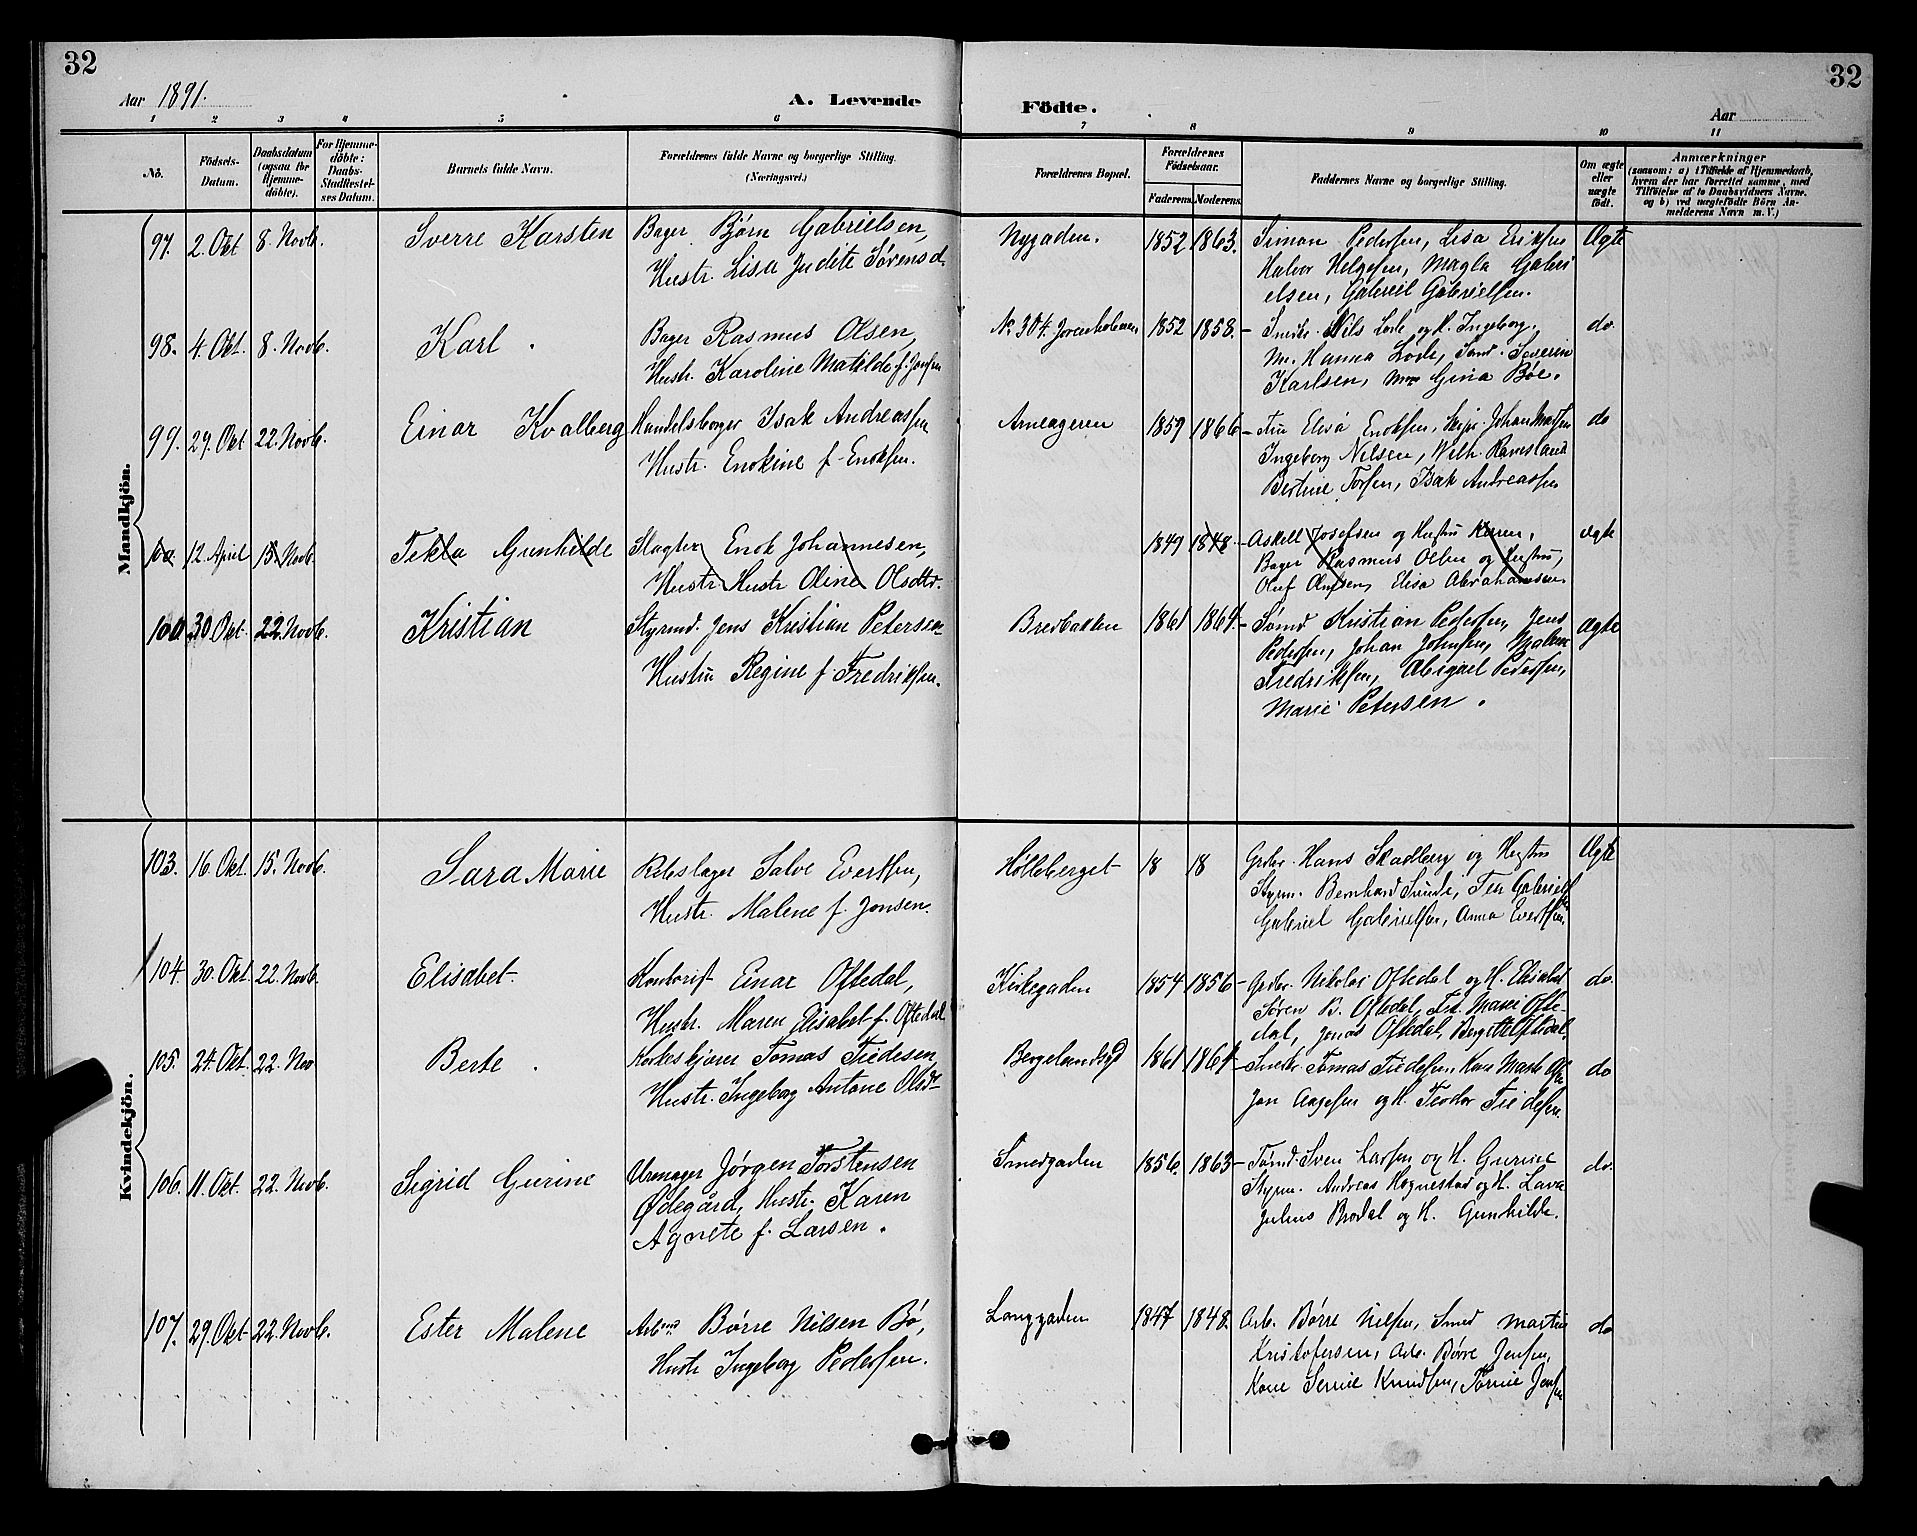 32
32
Aar 1891.
A. Levende
Födte.
Aar
1 2 3 4 5 6 7 8 9 10 11
No.
Födsels-Datum.
Daabsdatum (ogsaa for Hjemmedöbte).
For Hjemmedöbte: Daabs-Stadfæstelses Datum.
Barnets fulde Navn.
Forældrenes fulde Navne og borgerlige Stilling. (Næringsvei.)
Forældrenes Bopæl.
Forældrenes Födselsaar.
Faderens. Moderens.
Faddernes Navne og borgerlige Stilling.
Om ægte eller uægte födt.
Anmærkninger
(saasom: a) i Tilfælde af Hjemmedaab, hvem der har forrettet samme, med Tilföielse af to Daabsvidners Navne, og b) ved uægtefödte Börn Anmelderens Navn m. V.)
Mandkjön.
97. 2. Okt 8. Novb. Sverre Karsten Bager Bjørn Gabrielsen, Nygaden. 1852 1863. Simon Pedersen, Lisa Eriksen Ægte
Hustr. Lisa Judite Sørensd. Halvor Helgesen, Magla Gabri
elsen, Gabriel Gabrielsen.
98. 4. Okt. 8. Novb. Karl. Bager Rasmus Olsen, No 304. 1852 1858. Nils Lode og H. Ingeborg, do
Hustr. Karoline Matilde f. Jensen Hanna Lode, Severin
Karlsen, Gina Bøe.
99. 29. Okt 22. Novb. Einar Kvalberg Handelsborger Isak Andreassen 1859 1866 Elisa Enoksen, Skipr. Johan do
Hustr. Enokine f. Enoksen. Ingeborg Nielsen, Wilh. Ramsland
Bertine Torsen, Isak Andreassen
100 12. April 15. Novb. Tekla Gunhilde Slagter Enok Johannesen, 1849 1848 Askell Josefsen og Hustru Karen, Ægte
Hustr. Hustr Oline Olsdtr. Bager Rasmus Olsen og Hustru,
Oluf Olufsen, Elisa Abrahamsen
100 30. Okt 22. Novb. Kristian Styrmd. Jens Kristian Petersen Bredbakken 1861 1864 Sømd Kristian Pedersen, Jens Ægte
Hustru Regine f. Fredriksen. Pedersen, Johan Johnsen, Malene
Fredriksen, Abigael Pedersen,
Marie Petersen.
Kvindekjön.
103. 16. Okt. 15. Novb. Sara Marie Rebslager Salve Evertsen, Hølleberget 18 18 Grdbr. Hans Skadberg og Hustru Ægte
Hustr. Malene f. Jonsen. Styrm. Bernhard Sunde, Gabriels
Gabriel Gabrielsen, Anna Evertsen.
104. 30. Okt 22. Novb. Elisabet Kontorist Einar Oftedal, Kirkegaden 1854 1856 Grdbr. Nikolai Oftedal og H. Elisabet do.
Hustr. Maren Elisabet f. Oftedal Søren B. Oftedal, Frk. Marie Ofte
dal, Jonas Oftedal, Bergitte Oftedal.
105. 24. Okt. 22. Nov Berte. Tomas Tiedesen 1861 1864 Tomas Tiedesen, Kone Marta do
Hustr. Ingeborg Antone Olsdt Jon Aagesen og H. Teodor Tiedesen.
106. 11. Okt. 22. Novb. Sigrid Gurine Urmager Jørgen Torstensen Smedgaden 1856. 1863 Tømd. Sven Larsen og H. Gurine do.
Ødegård, Hustr. Karen Styrm. Andreas Hognestad og H. Lava
Agnete f. Larsen. Julius Brodal og H. Gunhilde.
107. 29. Okt 22. Novb. Ester Malene Arbmd Børre Nilsen Bø, Langgaden 1847 1848. Arb. Børre Nilsen, Smed Martin do
Hustr Ingeborg Pedersen. Kristofersen, Arb. Børre Jensen,
Kone Serine Knudsen, Tomine Jensen